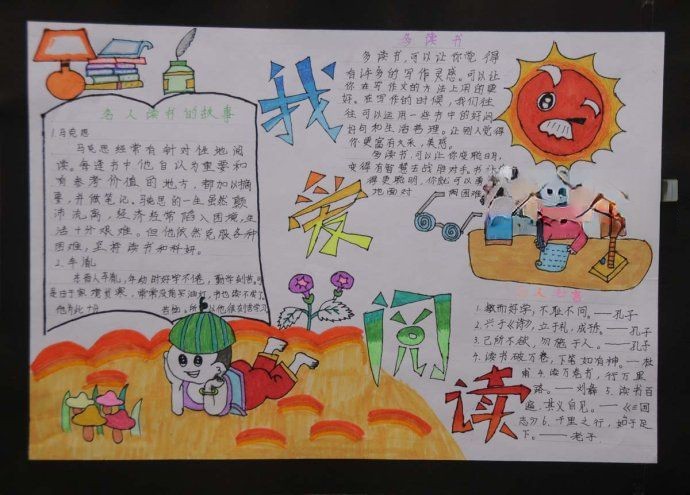 名人读书的故事
1.马克思
马克思经常有针对性地阅
读。每逢书中他自认为重要和
有参考价值的地方,都加以摘
要,并做笔记。马克思的一生虽然颠
沛流离,经济经常陷入困境,生
活十分艰难。但他依然克服各种
困难,坚持读书和科研。
2.车胤
我
爱
阅
读
多读书
多读书,可以让你觉得
有许多的写作灵感。可以让
你在写作文的方法上用的更
好。在写作的时候,我们往
往可以运用一些书中的好词
好句和生活哲理。让别人觉得
你更富有文采,美感。
多读书,可以让你变聪明,
变得有智慧去战胜对手。书
得更聪明,你就可以勇
地面对 困难
名人名言
1.敏而好学,不耻下问。——孔子
2.兴于《诗》,立于礼,成于乐。——孔子
3.己所不欲,勿施于人。——孔子
4.读书破万卷,下笔如有神。——杜
甫 4.读万卷书,行万里
路。——刘彝 5.读书百
遍,其义自见。——《三国
志》6.千里之行,始于足
下。——老子